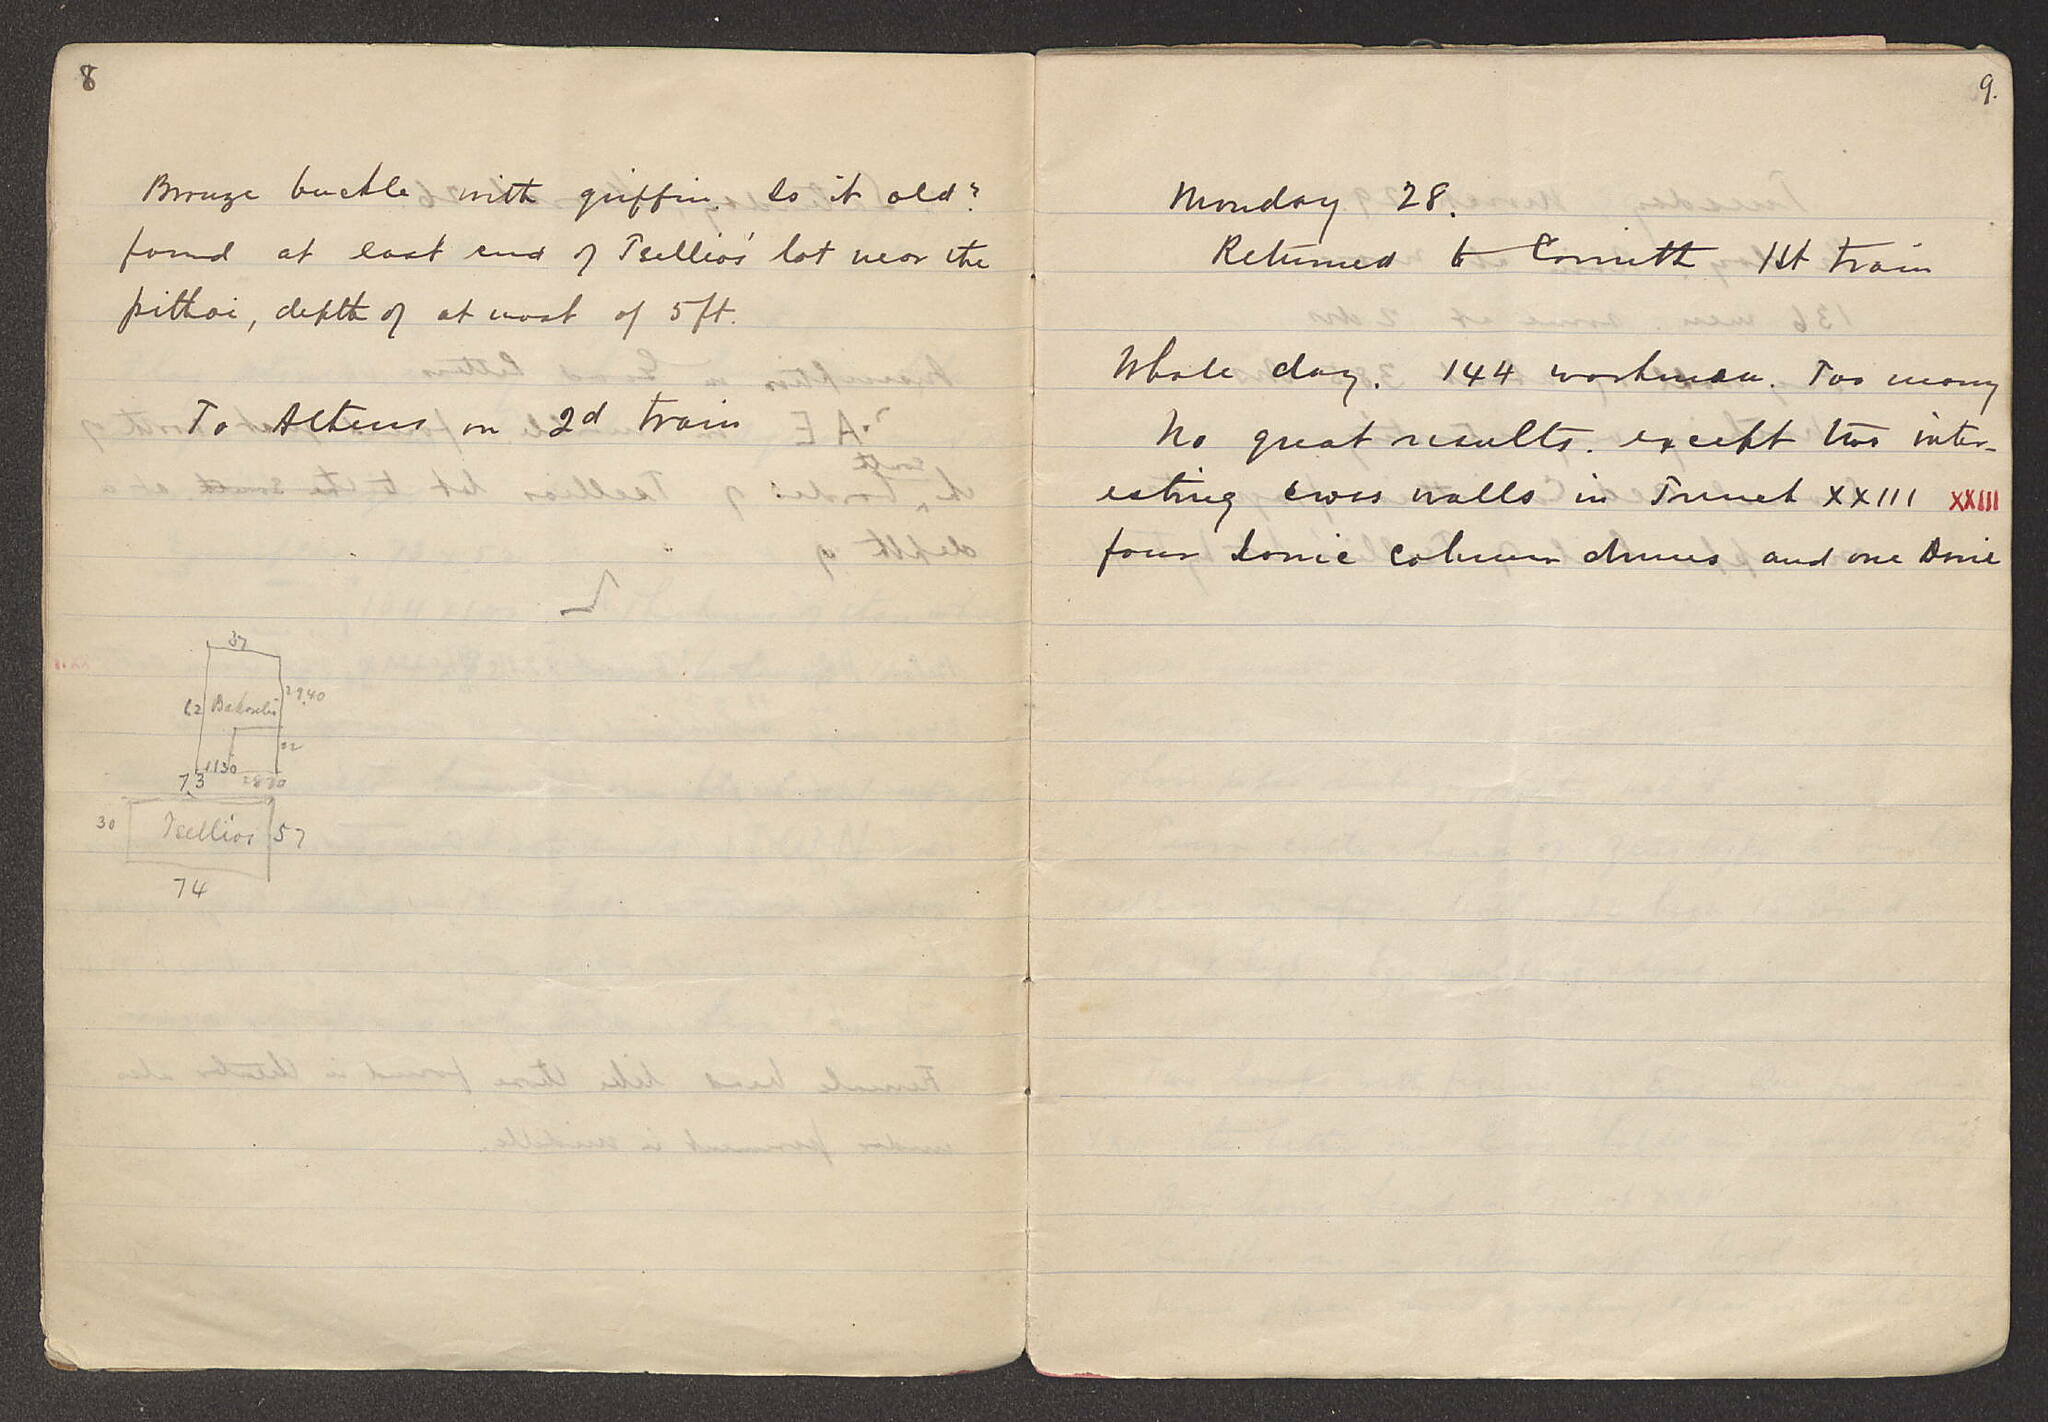 8
Bronze buckle with griffin. Is it old?
found at east end of Tsellios' lot near the
pithoi, depth of at most of 5 ft.
To Athens on 2d train
37
62 Bakoulis 29.40
22
11.30
7.3 28.70
30 Tsellios 57
74
9.
Monday 28.
Returned to Corinth 1st train
Whole day. 144 workmen. Too many
No great results. except two inter-
esting cross walls in Trench XXIII XXIII
four Ionic column drums and one Doric